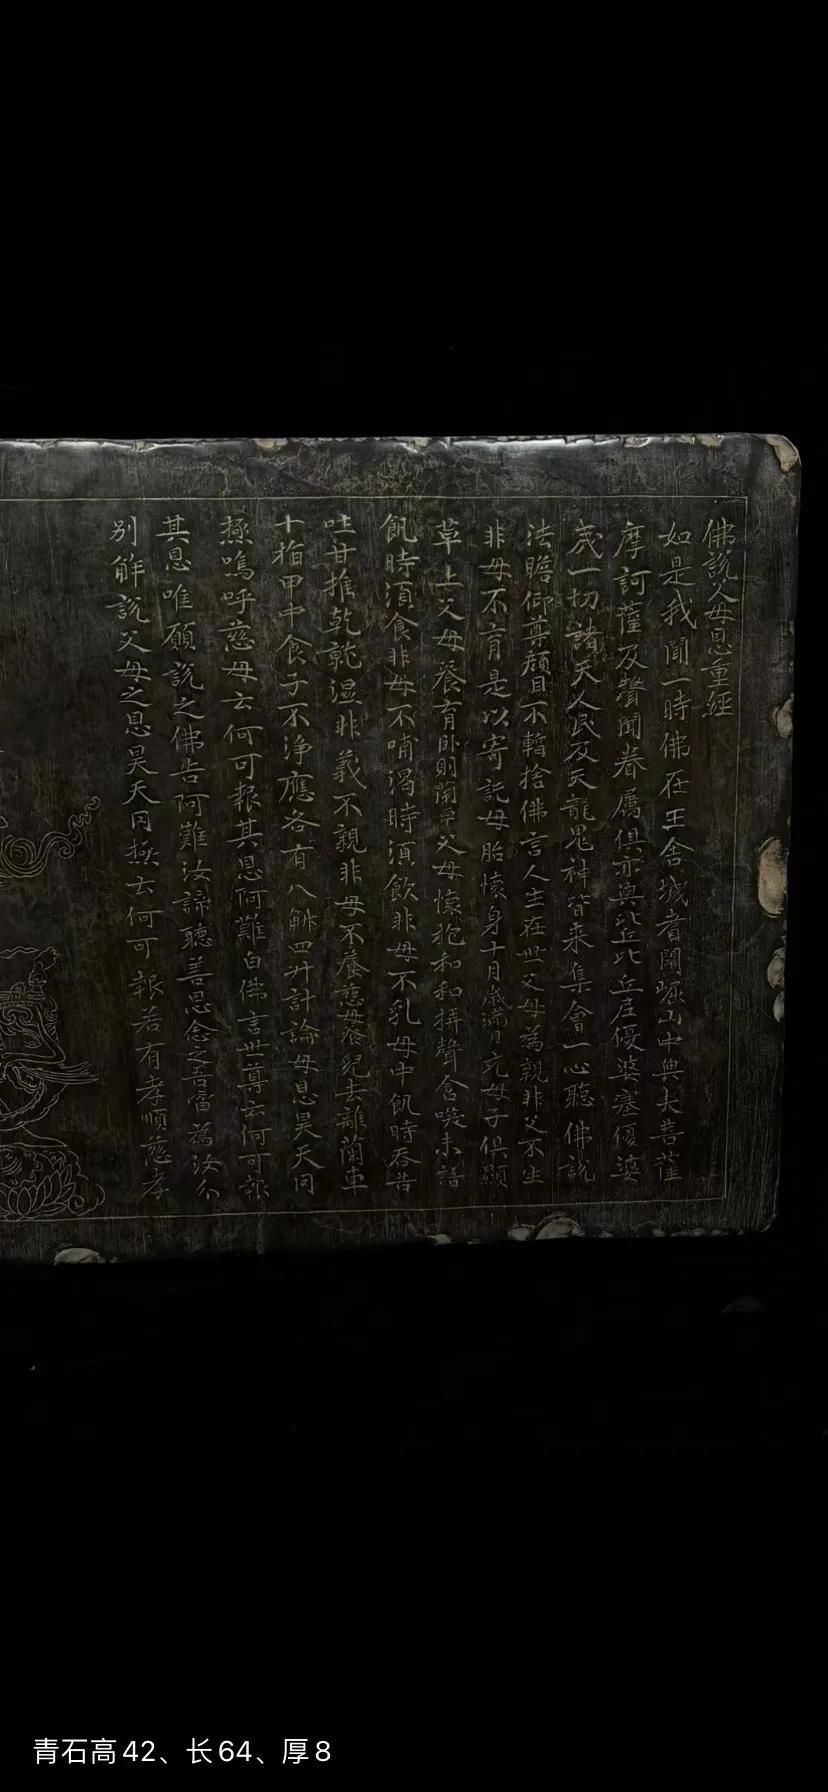 佛說父母恩重經
如是我聞一時佛在王舍城耆闍崛山中與大菩薩
摩訶薩及聲聞眷屬俱亦與比丘比丘尼優婆塞優婆
夷一切諸天人民及天龍鬼神皆来集會一心聽佛說
法瞻仰尊顏目不暫捨佛言人生在世父母為親非父不生
非母不育是以寄託母胎懷身十月歲滿月充母子俱顯
草上父母養育卧則蘭車父母懷抱和和弄聲含咲未語
飢時須食非母不哺渴時須飲非母不乳母中飢時吞苦
吐甘推乾就湿非義不親非母不養慈母養兒去離蘭車
十指甲中食子不淨應各有八斛四升計論母恩昊天同
極嗚呼慈母云何可報其恩阿難白佛言世尊云何可報
其恩唯願說之佛告阿難汝諦聽善思念之吾當為汝分
别解說父母之恩昊天同極云何可報若有孝順慈孝
青石高42、长64、厚8